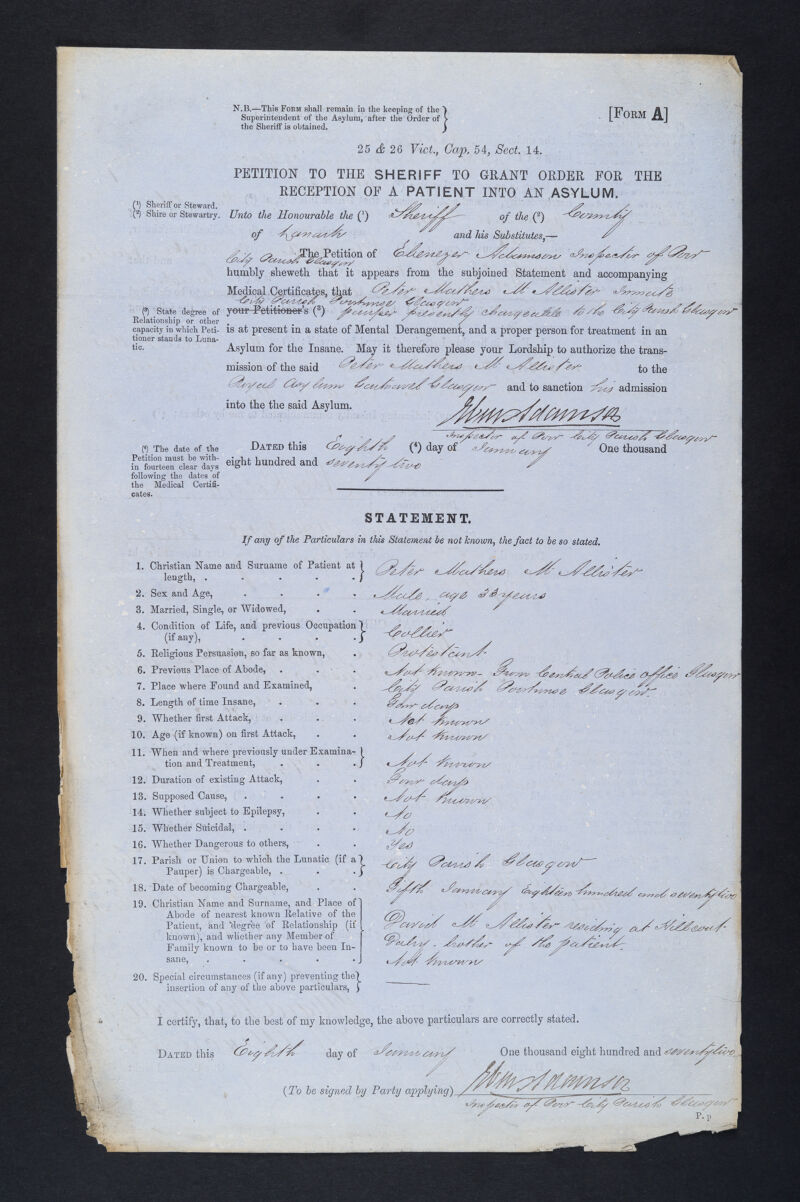 N.B.—This Form shall remain in the keeping of the
Superintendent of the Asylum, after the Order of
the Sheriff is obtained.
[Form A]
25 & 26 Vict., Cap. 54, Sect. 14.
PETITION TO THE SHERIFF TO GRANT ORDER FOR THE
RECEPTION OF A PATIENT INTO AN ASYLUM.
(1) Sheriff or Steward.
(2) Shire or Stewartry.
Unto the Honourable the (1) Sheriff of the (2) County
of Lanark and his Substitutes,—
The Petition of Ebenezer Adamson Inspector of Poor
City Parish Glasgow
humbly sheweth that it appears from the subjoined Statement and accompanying
Medical Certificates, that Peter Mathers Mc Allister Inmate
City Parish Poorhouse Glasgow
(3) State degree of
Relationship or other
capacity in which Peti-
tioner stands to Luna-
tic.
your Petitioner's (3) pauper presently chargeable to the City Parish Glasgow
is at present in a state of Mental Derangement, and a proper person for treatment in an
Asylum for the Insane. May it therefore please your Lordship to authorize the trans-
mission of the said Peter Mathers Mc Allister to the
Royal Asylum Gartnavel Glasgow and to sanction his admission
into the the said Asylum.
Eben Adamson
Inspector of Poor City Parish Glasgow
(4) The date of the
Petition must be with-
in fourteen clear days
following the dates of
the Medical Certifi-
cates.
Dated this Eighth (4) day of January One thousand
eight hundred and seventy two
STATEMENT.
If any of the Particulars in this Statement be not known, the fact to be so stated.
1. Christian Name and Surname of Patient at
length, Peter Mathers Mc Allister
2. Sex and Age, Male. age 33 years
3. Married, Single, or Widowed, Married
4. Condition of Life, and previous Occupation
(if any), Collier
5. Religious Persuasion, so far as known, Protestant
6. Previous Place of Abode, Not known - From Central Police office Glasgow
7. Place where Found and Examined, City Parish Poorhouse Glasgow.
8. Length of time Insane, Four days
9. Whether first Attack, Not known
10. Age (if known) on first Attack, Not known
11. When and where previously under Examina-
tion and Treatment, Not known
12. Duration of existing Attack, Four days
13. Supposed Cause, Not known
14. Whether subject to Epilepsy, No
15. Whether Suicidal, No
16. Whether Dangerous to others, Yes
17. Parish or Union to which the Lunatic (if a
Pauper) is Chargeable, City Parish Glasgow
18. Date of becoming Chargeable, Fifth January Eighteen hundred and seventy two
19. Christian Name and Surname, and Place of
Abode of nearest known Relative of the
Patient, and degree of Relationship (if
known), and whether any Member of
Family known to be or to have been In-
sane,
David Mc Allister residing at
Dalry. brother of the patient.
Not known
20. Special circumstances (if any) preventing the
insertion of any of the above particulars,
I certify, that, to the best of my knowledge, the above particulars are correctly stated.
Dated this Eighth day of January One thousand eight hundred and seventy two
(To be signed by Party applying) Eben Adamson
Inspector of Poor City Parish Glasgow
P. p